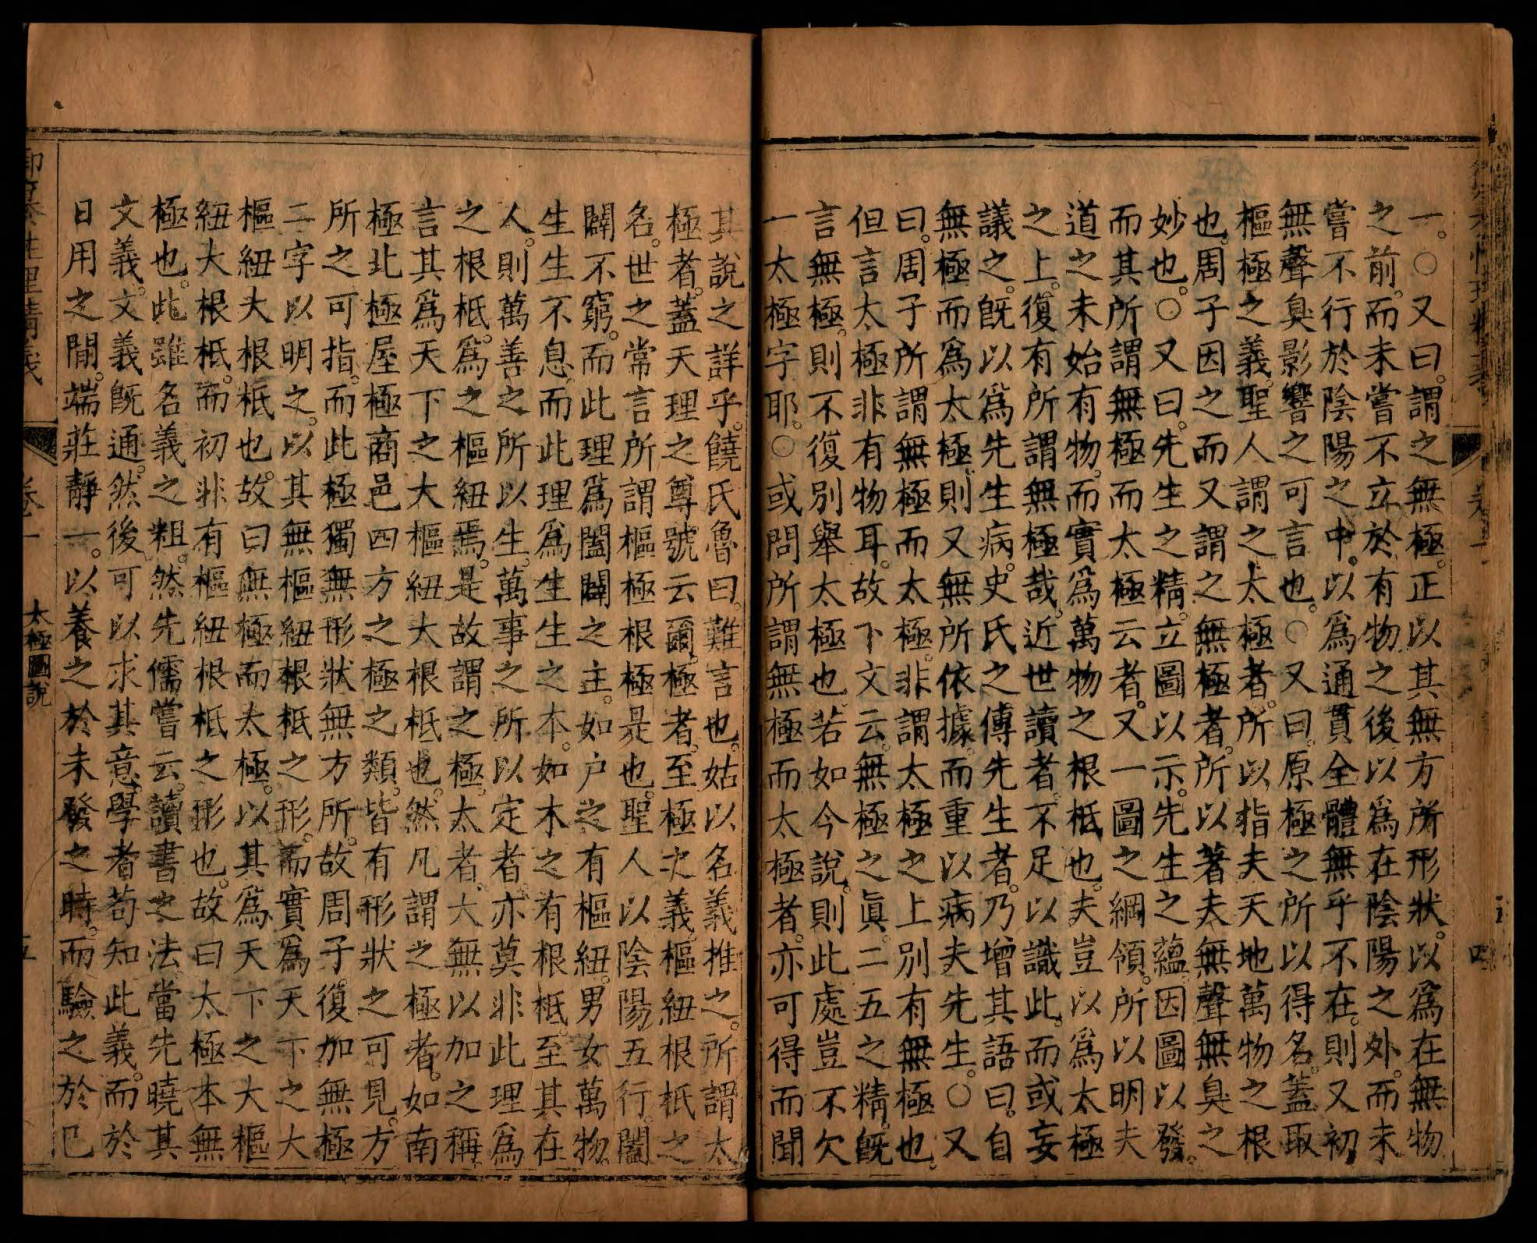 一。○又曰。謂之無極。正以其無方所形狀。以爲在無物
之前。而未嘗不立於有物之後。以爲在陰陽之外。而未
嘗不行於陰陽之中。以爲通貫全體。無乎不在。則又初
無聲臭影響之可言也。○又曰。原極之所以得名。蓋取
樞極之義。聖人謂之太極者。所以指夫天地萬物之根
也。周子因之而又謂之無極者。所以著夫無聲無臭之
妙也。○又曰。先生之精。立圖以示。先生之蘊。因圖以發。
而其所謂無極而太極云者。又一圖之綱領。所以明夫
道之未始有物。而實爲萬物之根柢也。夫豈以爲太極
之上。復有所謂無極哉。近世讀者。不足以識此。而或妄
議之。既以爲先生病。史氏之傳先生者。乃增其語曰。自
無極而爲太極。則又無所依據。而重以病夫先生。○又
曰。周子所謂無極而太極。非謂太極之上別有無極也。
但言太極非有物耳。故下文云。無極之眞。二五之精。既
言無極。則不復別舉太極也。若如今說。則此處豈不欠
一太極字耶。○或問所謂無極而太極者。亦可得而聞
其說之詳乎。饒氏魯曰。難言也。姑以名義推之。所謂太
極者。蓋天理之尊號云爾。極者。至極之義。樞紐根柢之
名。世之常言所謂樞極根極是也。聖人以陰陽五行。闔
闢不窮。而此理爲闔闢之主。如户之有樞紐。男女萬物
生生不息。而此理爲生生之本。如木之有根柢。至其在
人。則萬善之所以生。萬事之所以定者。亦莫非此理爲
之根柢。爲之樞紐焉。是故謂之極。太者。大無以加之稱
言其爲天下之大樞紐大根柢也。然凡謂之極者。如南
極北極屋極商邑四方之極之類。皆有形狀之可見。方
所之可指。而此極獨無形狀無方所。故周子復加無極
二字以明之。以其無樞紐根柢之形。而實爲天下之大
樞紐大根柢也。故曰無極而太極。以其爲天下之大樞
紐大根柢。而初非有樞紐根柢之形也。故曰太極本無
極也。此雖名義之粗。然先儒嘗云。讀書之法。當先曉其
文義。文義既通。然後可以求其意。學者苟知此義。而於
日用之間。端莊靜一。以養之於未發之時。而驗之於已
御纂性理精義
卷一
太極圖說
五